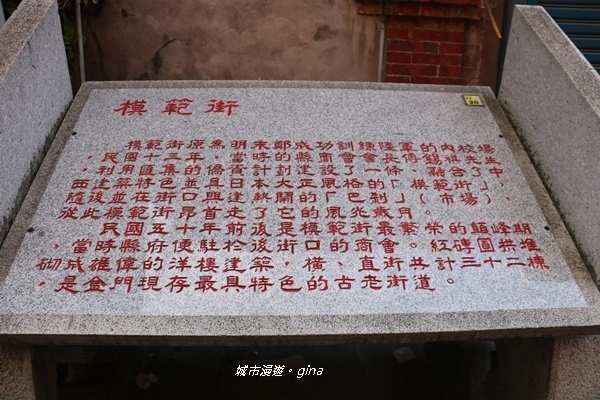 模範街
模範街原為明末鄭成功訓練陸軍的內校場
，民國十三年，當時的商會會長傅錫祺先生
利用匯集的僑資計劃建設一條融合了中
西建築特色具日本大正風格的「模範街」，
隨後並在街口建了「巴剎」（市場）、
從此模範街昂首走開它的風光歲月。
民國五十年前後是模範街最繁榮的顛峰期
，當時縣府便駐於後街口的商會。紅磚圓拱堆
砌成雄偉的洋樓建築，橫、直街共計三十二棟
是金門現存最具特色的古老街道。
城市漫遊。gina